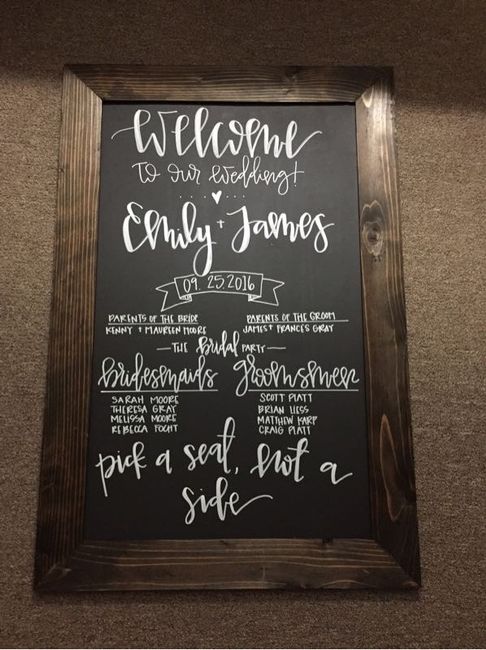 Welcome
to our wedding!
Emily + James
09.25.2016
PARENTS OF THE BRIDE
KENNY + MAUREEN MOORE
PARENTS OF THE GROOM
JAMES + FRANCES GRAY
—THE bridal PARTY—
bridesmaids
SARAH MOORE
THERESA GRAY
MELISSA MOORE
REBECCA FOCHT
groomsmen
SCOTT PLATT
BRIAN HESS
MATTHEW KARP
CRAIG PLATT
pick a seat, not a
side